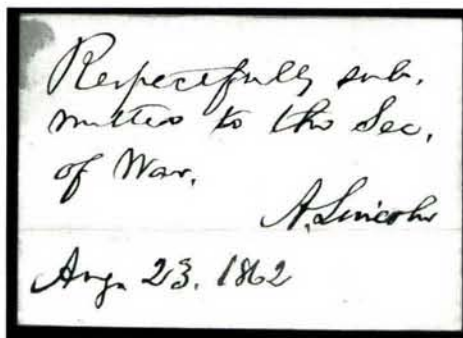 Respectfully sub.
mitted to the Sec.
of War.
A. Lincoln
Aug. 23, 1862